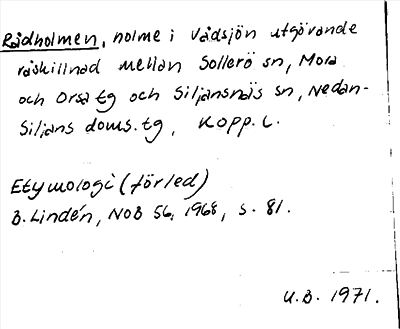 Rådholmen, holme i Vådsjön utgörande
råskillnad mellan Sollerö sn, Mora
och Orsa tg och Siljansnäs sn, Nedan-
Siljans doms.tg, Kopp. L.
Etymologi (förled)
B. Lindén, NOB 56, 1968, s. 81.
U.B. 1971.